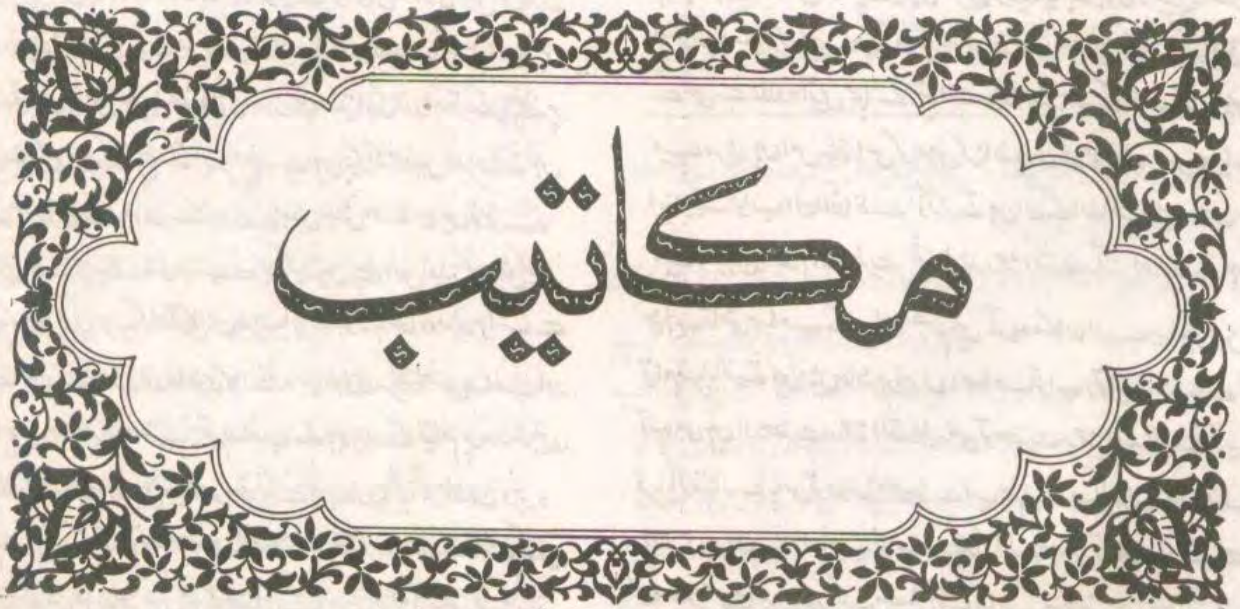 مکاتیب